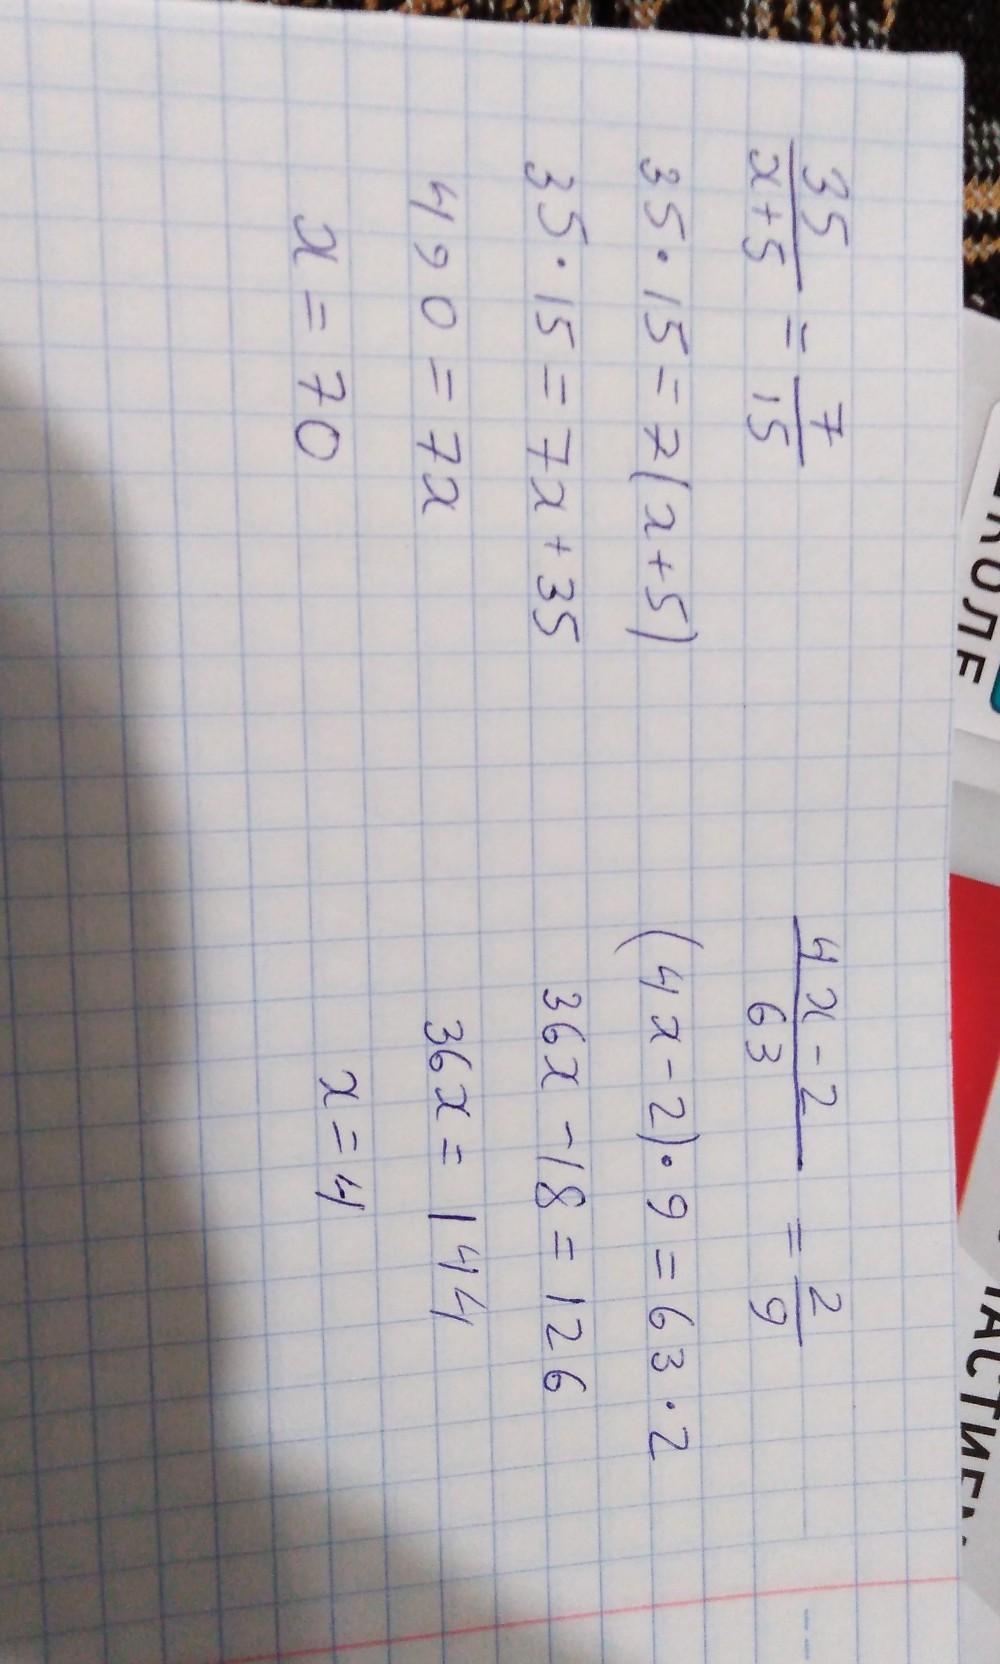 35/(x+5) = 7/15
35·15=7(x+5)
35·15=7x+35
490=7x
x=70
(4x-2)/63 = 2/9
(4x-2)·9=63·2
36x-18=126
36x=144
x=4